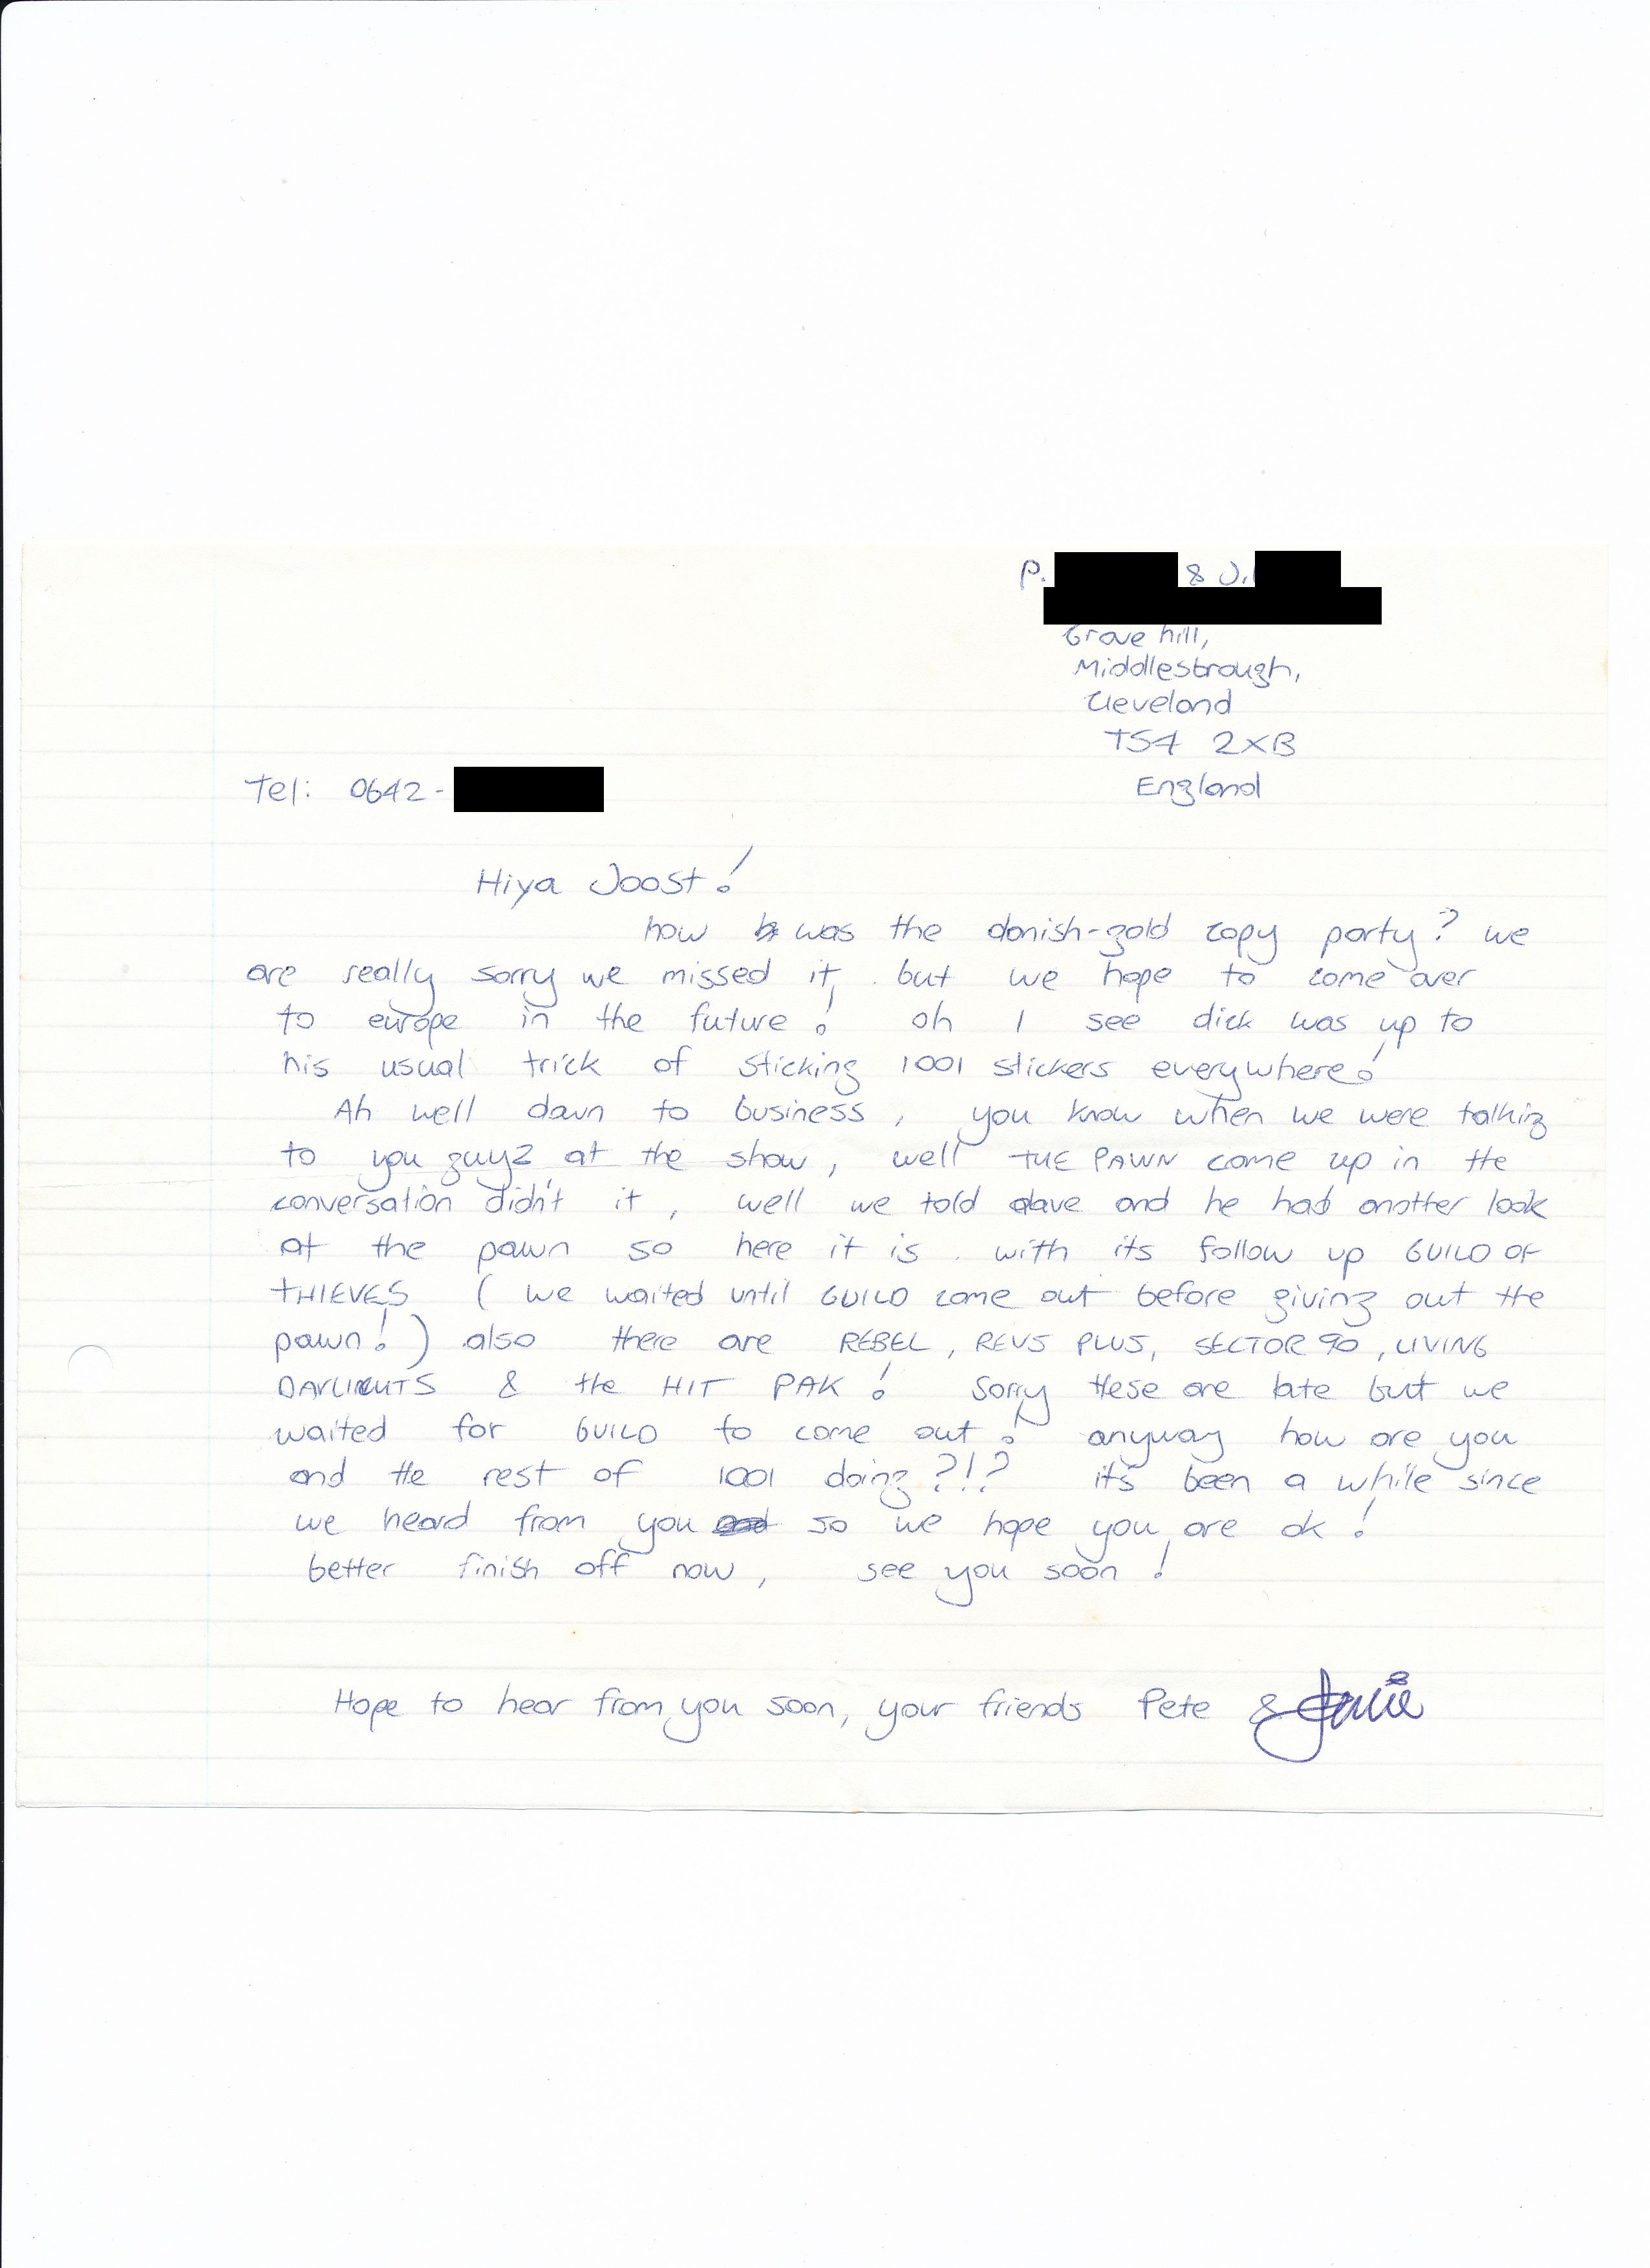 P. & J.
Grove hill,
Middlesbrough,
Cleveland
TS4 2XB
England
Tel: 0642-
Hiya Joost!
how was the danish-gold copy party? we
are really sorry we missed it, but we hope to come over
to europe in the future! oh I see dick was up to
his usual trick of sticking 1001 stickers everywhere!
Ah well down to business, you know when we were talking
to you guyz at the show, well THE PAWN come up in the
conversation didn't it, well we told dave and he had another look
at the pawn so here it is. with its follow up GUILD OF
THIEVES (we waited until GUILD come out before giving out the
pawn!) also there are REBEL, REVS PLUS, SECTOR 90, LIVING
DAYLIGHTS & the HIT PAK! Sorry these are late but we
waited for GUILD to come out! anyway how are you
and the rest of 1001 doing?!? it's been a while since
we heard from you so we hope you are ok!
better finish off now, see you soon!
Hope to hear from you soon, your friends Pete &